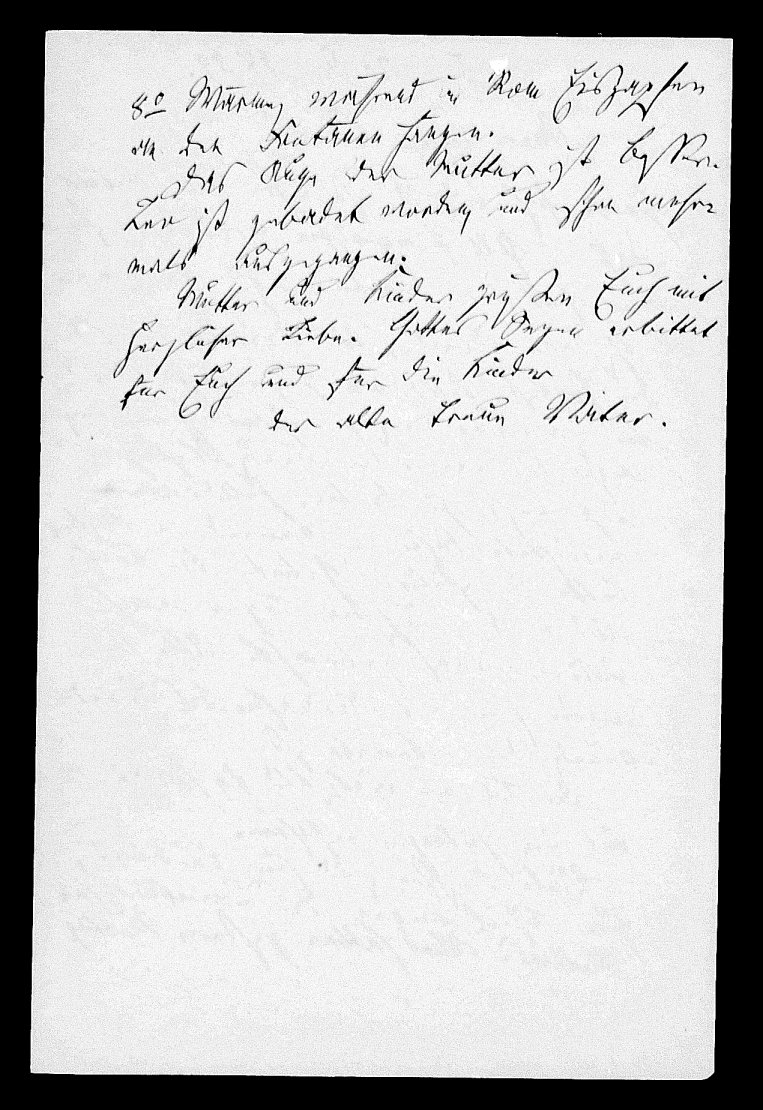 8º Wärme, während in Rom Eiszapfen
an den Fontänen hangen.
Das Auge der Mutter ist besser.
Leo ist gebadet worden, und schon mehr=
mals ausgegangen.
Mutter und Kinder grüßen Euch mit
herzlicher Liebe. Gottes Segen erbittet
für Euch und für die Kinder
der alte treue Vater.